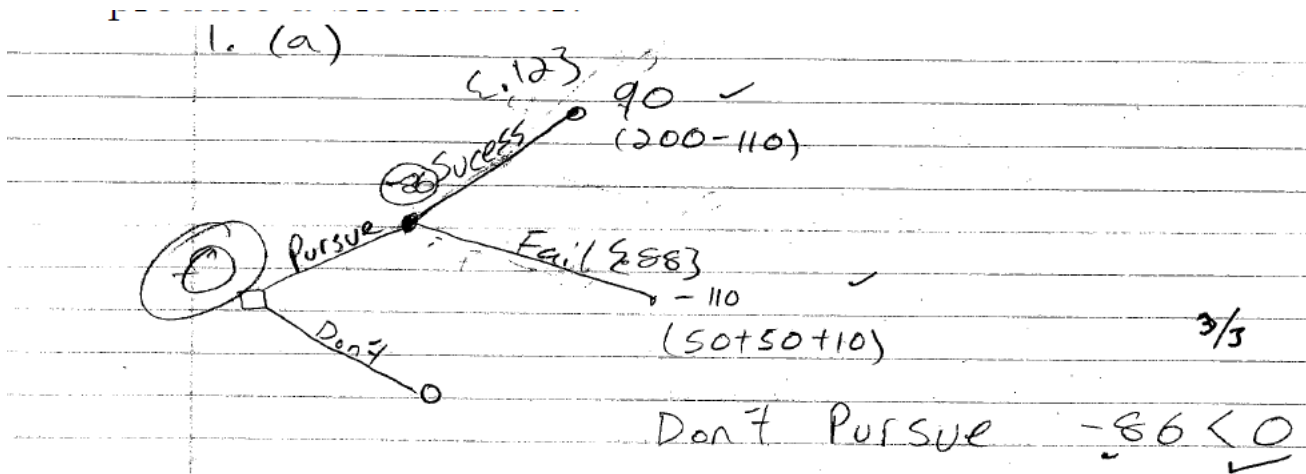 1. (a)
{.12} 90 ✓
(200-110)
-86 Sucess
Pursue
Fail {.88}
-110 ✓
(50+50+10)
3/3
Don't
0
Don't Pursue -86 < 0 ✓